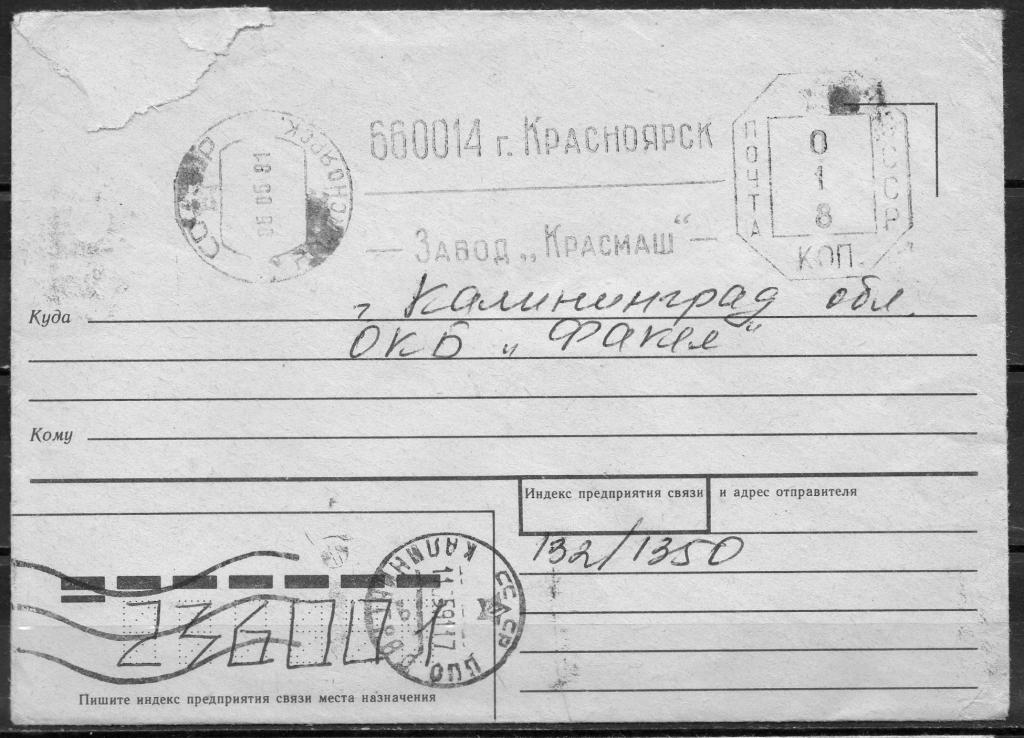 660014 г. КРАСНОЯРСК
— ЗАВОД „КРАСМАШ“ —
СССР
КРАСНОЯРСК
06 05 91
ПОЧТА
СССР
018
КОП.
Куда г Калининград обл.
ОКБ „Факел“
Кому
Индекс предприятия связи и адрес отправителя
132/1350
КАЛИНИНГРАД
СССР
236001
Пишите индекс предприятия связи места назначения